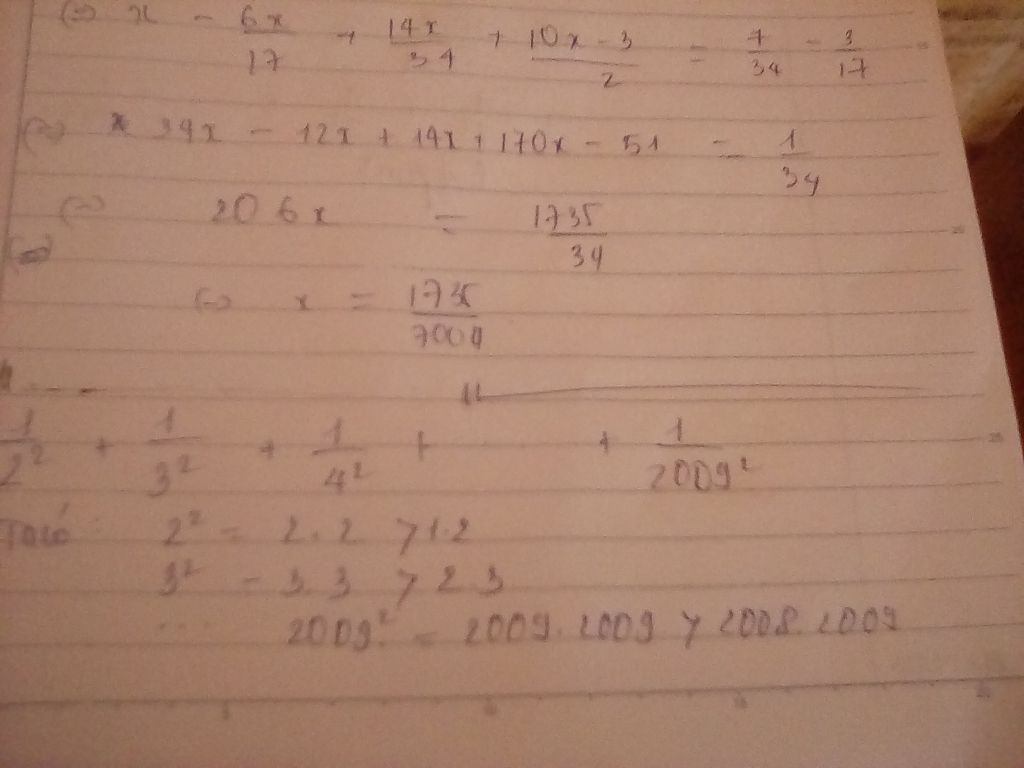 (=) x - 6x/17 + 14x/34 + 10x - 3/2 = 7/34 - 3/17
(=) 34x - 12x + 14x + 170x - 51 = 1/34
(=) 206x = 1735/34
(=) x = 1735/7004
1/2² + 1/3² + 1/4² + + 1/2009²
Ta có: 2² = 2.2 > 1.2
3² = 3.3 > 2 3
... 2009² = 2009.2009 > 2008.2009